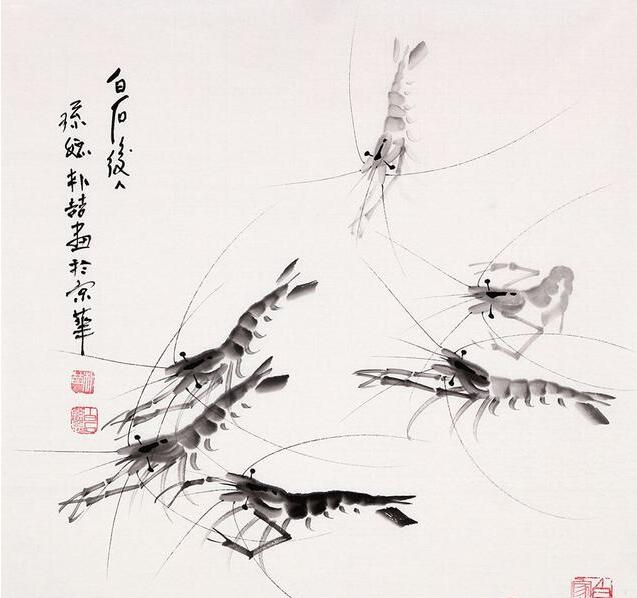 白石後人
孫媳朴喆畫於京華